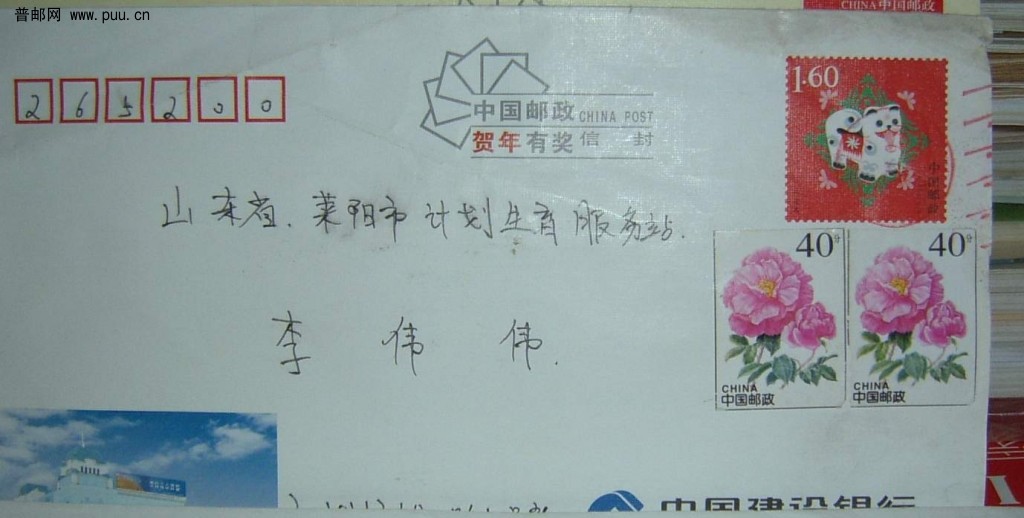 普邮网 www.puu.cn
CHINA中国邮政
265200
中国邮政 CHINA POST
贺年有奖信封
1.60
中国邮政
山东省.莱阳市计划生育服务站.
40分
40分
李伟伟.
CHINA
中国邮政
CHINA
中国邮政
中国建设银行